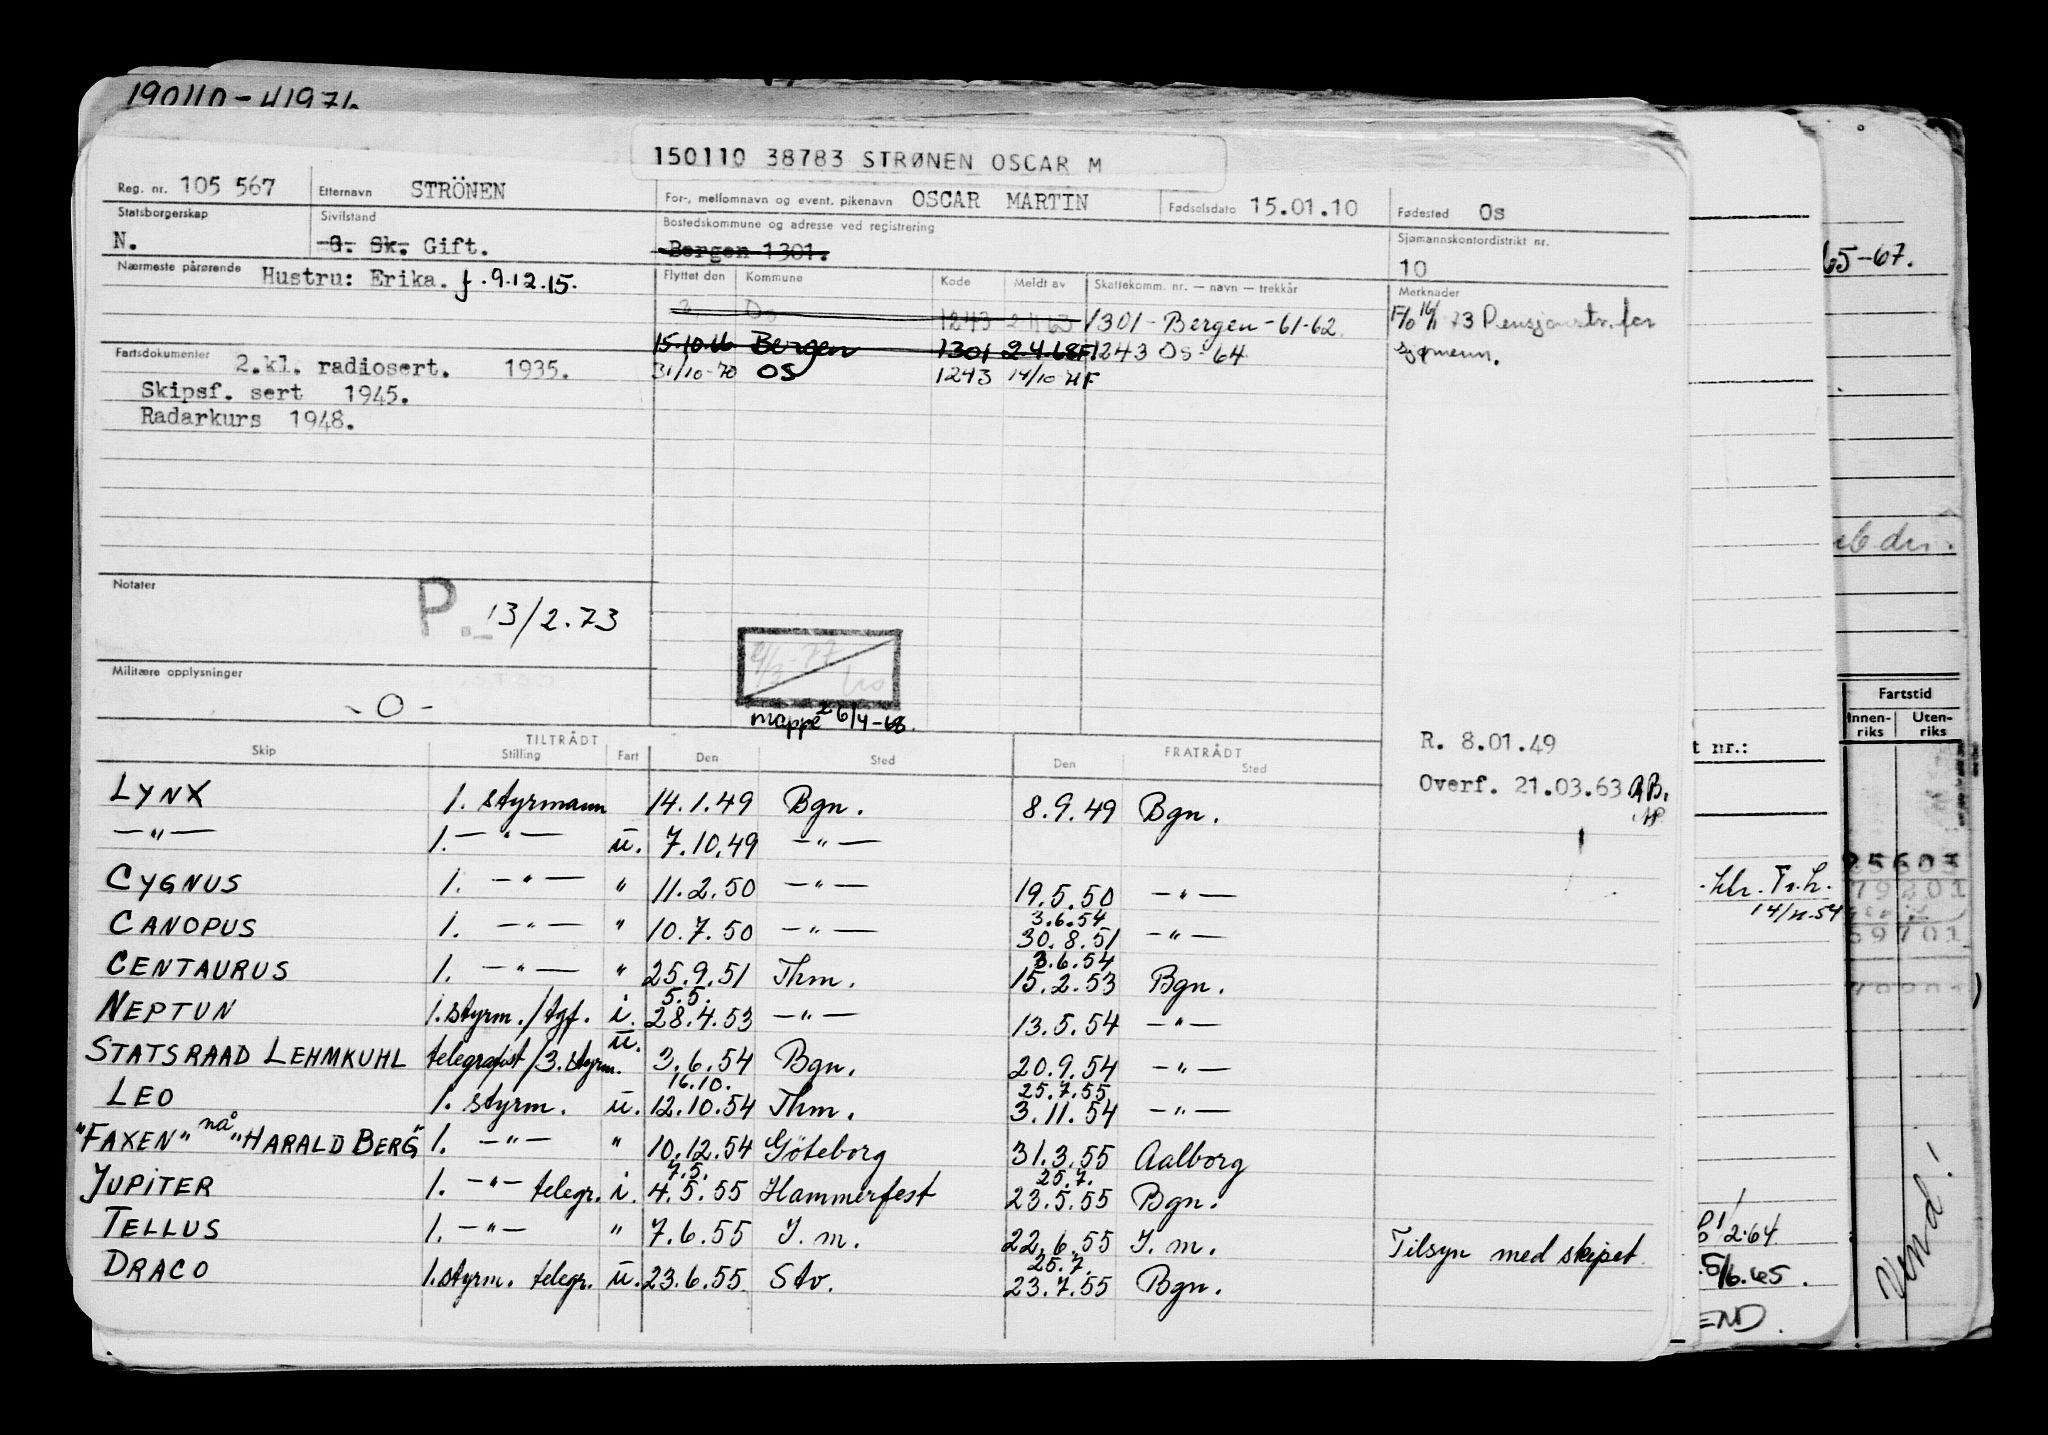 190110-41976
150110 38783 STRØNEN OSCAR M
Reg. nr. 105 567 Etternavn STRÖNEN For-, mellomnavn og event. pikenavn OSCAR MARTIN Fødselsdato 15.01.10 Fødested Os
Statsborgerskap N. Sivilstand G. Sk. Gift. Bostedskommune og adresse ved registrering Bergen 1301. Sjømannskontordistrikt nr. 10
Nærmeste pårørende Hustru: Erika. f. 9.12.15.
Flyttet den Kommune Kode Meldt av Skattekomm. nr. — navn — trekkår Merknader
Os 1243 1301 - Bergen - 61-62
15.10.66 Bergen 1301 2.4.68F 1243 Os - 64
31/10-70 OS 1243 14/10 HF
73 Pensjonstr. for
sjømenn.
Fartsdokumenter 2.kl. radiosert. 1935.
Skipsf. sert 1945.
Radarkurs 1948.
Notater
P. 13/2.73
Militære opplysninger
- O -
mappe 26/4-68.
R. 8.01.49
Overf. 21.03.63
TILTRÅDT FRATRÅDT
Skip Stilling Fart Den Sted Den Sted
LYNX 1. styrmann 14.1.49 Bgn. 8.9.49 Bgn.
—"— 1. —"— u. 7.10.49 —"—
CYGNUS 1. —"— " 11.2.50 —"— 19.5.50 —"—
3.6.54
CANOPUS 1. —"— " 10.7.50 —"— 30.8.51 —"—
3.6.54
CENTAURUS 1. —"— " 25.9.51 Thm. 15.2.53 Bgn.
5.5.
NEPTUN 1. styrm./tgf. i. 28.4.53 —"— 13.5.54 —"—
STATSRAAD LEHMKUHL telegrafist/3. styrm. u. 3.6.54 Bgn. 20.9.54 —"—
16.10. 25.7.55
LEO 1. styrm. u. 12.10.54 Thm. 3.11.54 —"—
"FAXEN" nå "HARALD BERG" 1. —"— " 10.12.54 Göteborg 31.3.55 Aalborg
7.5. 25.7.
JUPITER 1. —"— telegr. i. 4.5.55 Hammerfest 23.5.55 Bgn.
TELLUS 1. —"— " 7.6.55 I. m. 22.6.55 I. m. Tilsyn med skipet
25.7.
DRACO 1. styrm. telegr. u. 23.6.55 Stv. 23.7.55 Bgn.
65-67.
Fartstid
Innen-riks Uten-riks
t nr.:
14/11-54
1/2.64
5/6.65.
END.
Vend!